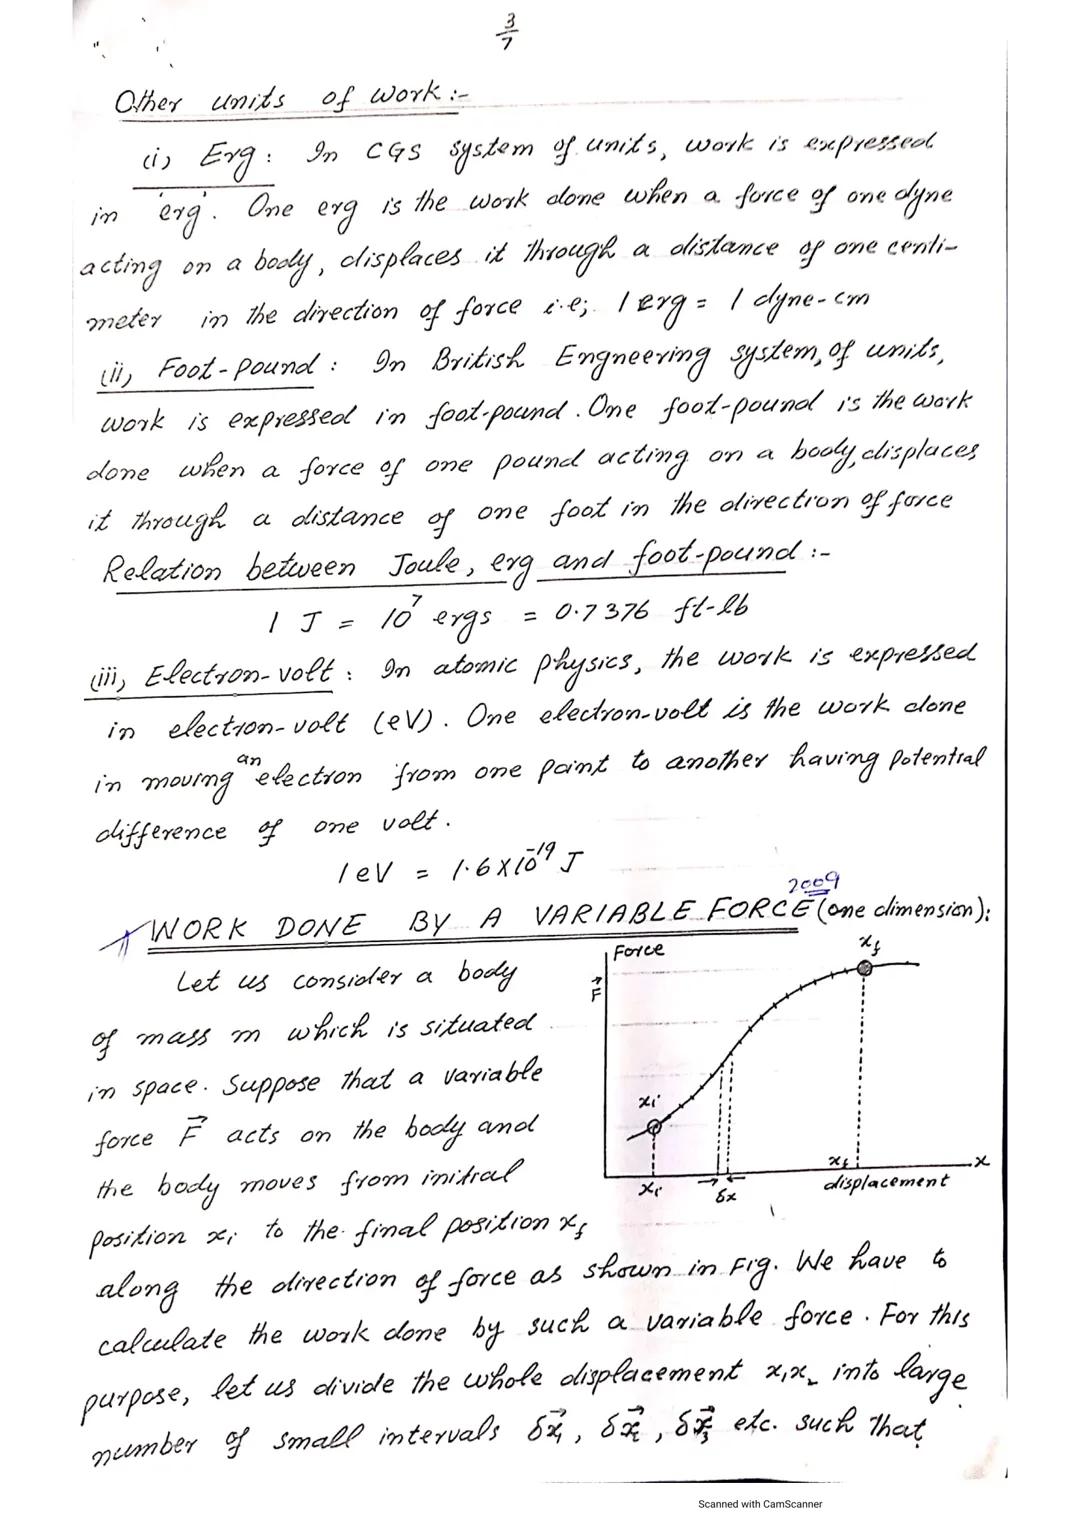 3/7
Other units of work :-
(i) Erg : In CGS system of units, work is expressed
in 'erg'. One erg is the work done when a force of one dyne
acting on a body, displaces it through a distance of one centi-
meter in the direction of force i.e; 1 erg = 1 dyne-cm
(ii) Foot-pound : In British Engneering system, of units,
work is expressed in foot-pound. One foot-pound is the work
done when a force of one pound acting on a body, displaces
it through a distance of one foot in the direction of force
Relation between Joule, erg and foot-pound :-
1 J = 10⁷ ergs = 0.7376 ft-lb
(iii) Electron-volt : In atomic physics, the work is expressed
in electron-volt (eV). One electron-volt is the work done
in moving an electron from one point to another having potential
difference of one volt.
1 eV = 1.6 X 10⁻¹⁹ J
2009
WORK DONE BY A VARIABLE FORCE (one dimension):
Let us consider a body
of mass m which is situated
in space. Suppose that a variable
force F⃗ acts on the body and
the body moves from initial
position xᵢ to the final position x_f
Force
F⃗
x_f
xᵢ
xᵢ
δx
x_f
x
displacement
along the direction of force as shown in Fig. We have to
calculate the work done by such a variable force. For this
purpose, let us divide the whole displacement x₁x₂ into large
number of small intervals δx⃗₁, δx⃗₂, δx⃗₃ etc. such that
Scanned with CamScanner